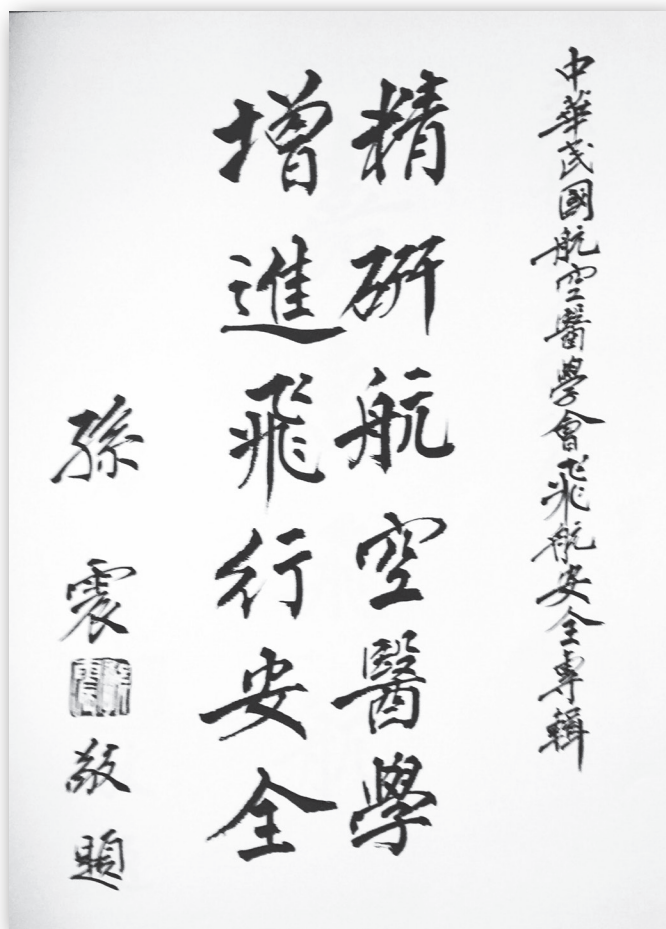 中華民國航空醫學會飛航安全專輯
精研航空醫學
增進飛行安全
孫震敬題